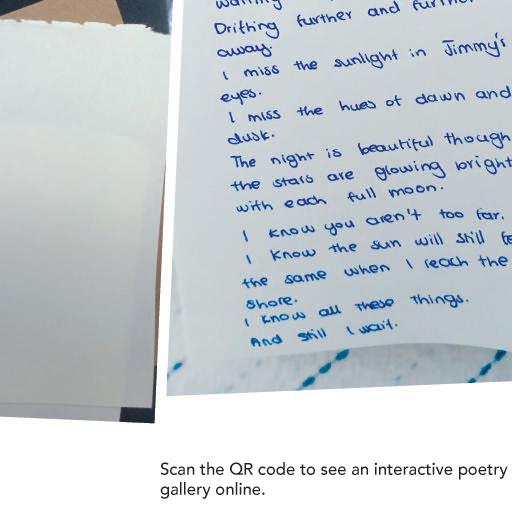 Drifting further and
away.
I miss the sunlight in Jimmy's
eyes.
I miss the hues of dawn and
dusk.
The night is beautiful though
the stars are glowing bright
with each full moon.
I know you aren't too far.
I know the sun will still
the same when I reach the
shore.
I know all these things.
And still I wait.
Scan the QR code to see an interactive poetry
gallery online.